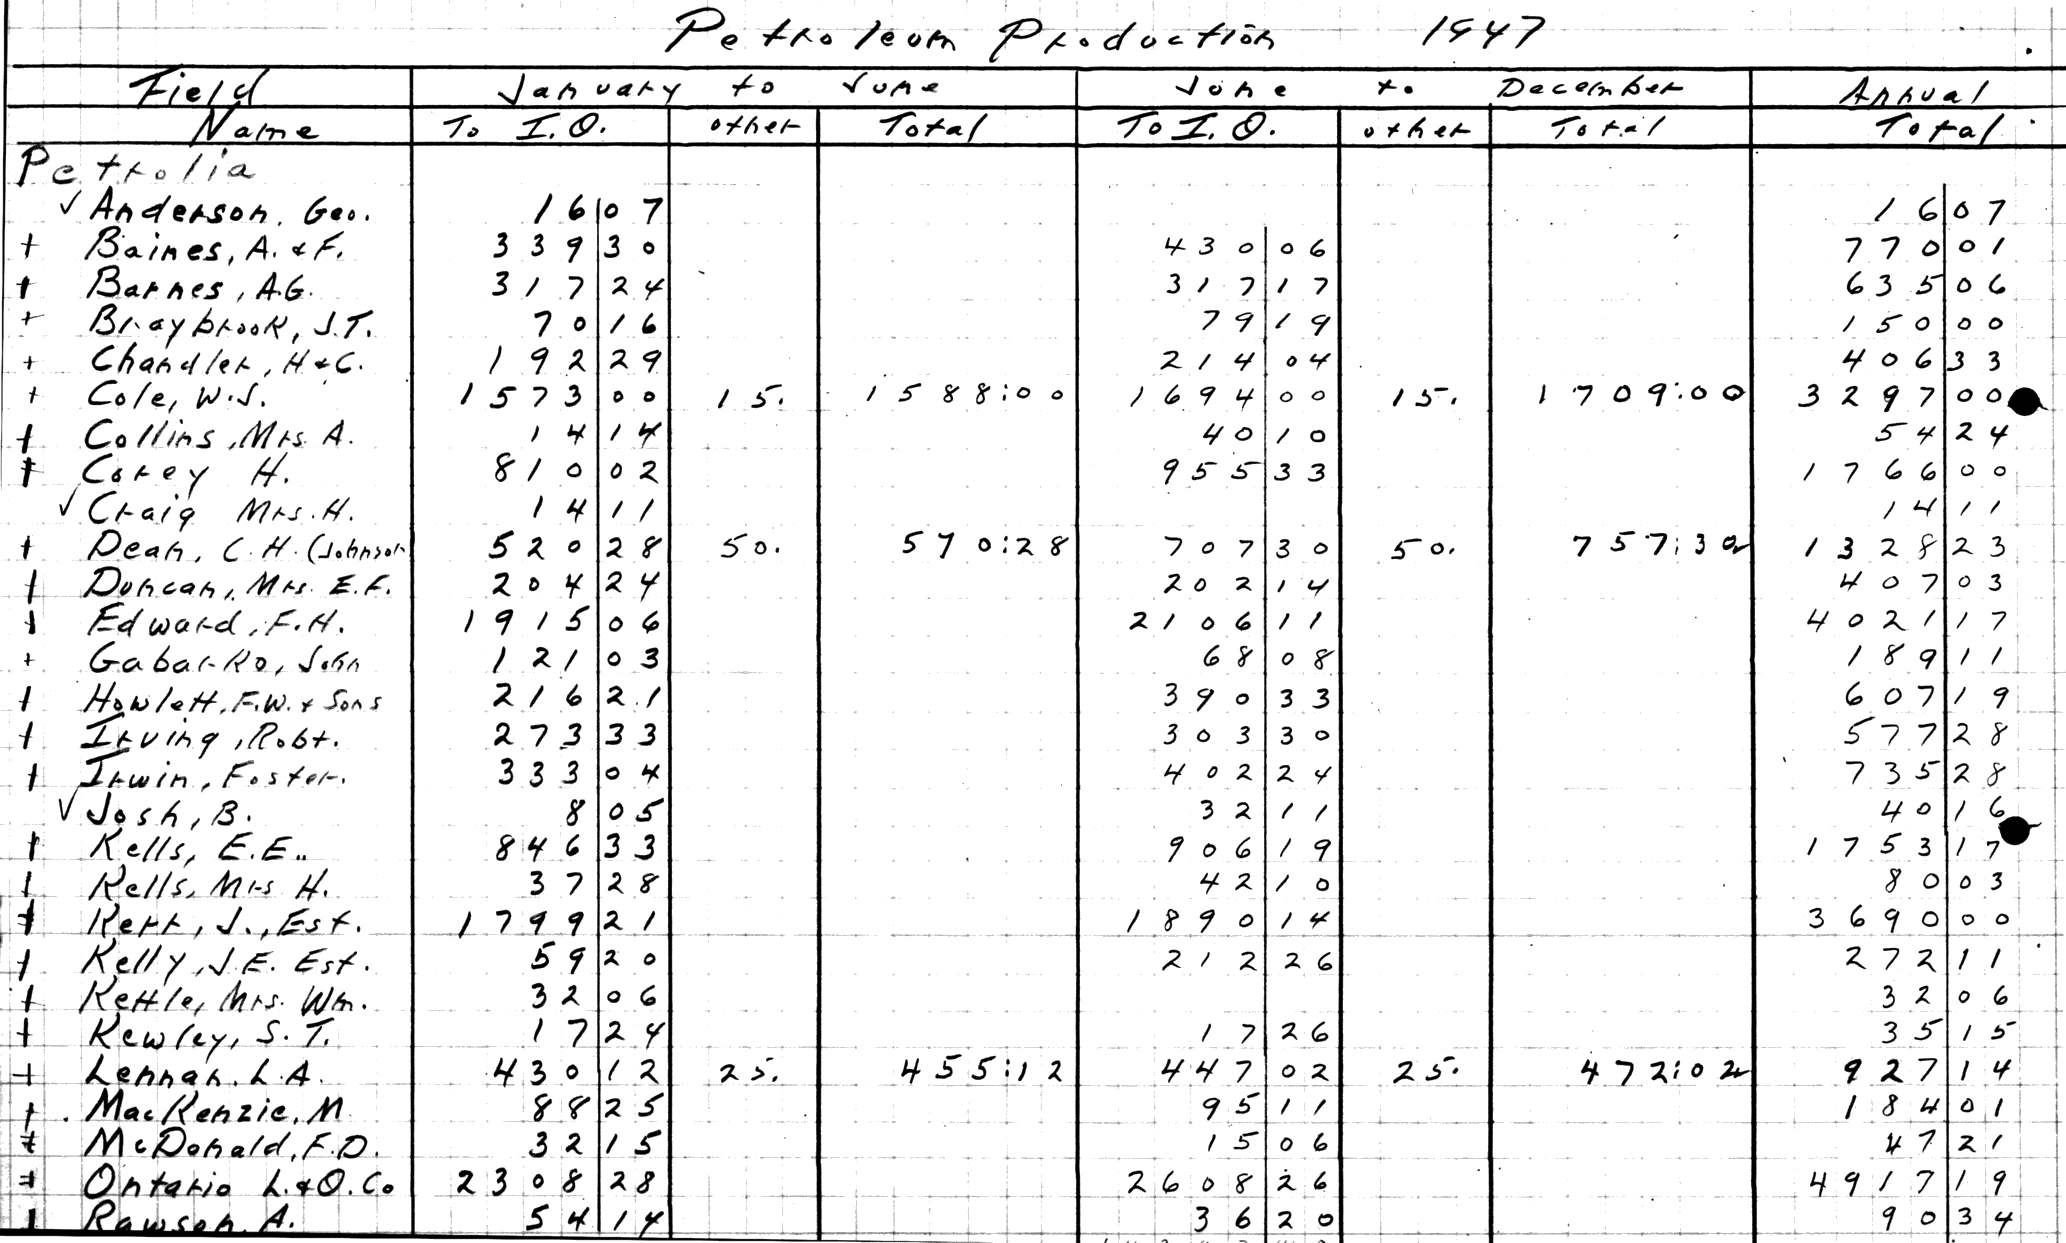 Petroleum Production 1947
Field January to June June to December Annual
Name To I.O. other Total To I.O. other Total Total
Petrolia
✓ Anderson, Geo. 16 07 16 07
+ Baines, A. & F. 339 30 430 06 770 01
+ Barnes, A.G. 317 24 317 17 635 06
+ Braybrook, J.T. 70 16 79 19 150 00
+ Chandler, H & C. 192 29 214 04 406 33
+ Cole, W.S. 1573 00 15. 1588:00 1694 00 15. 1709:00 3297 00
+ Collins, Mrs. A. 14 14 40 10 54 24
+ Corey H. 810 02 955 33 1766 00
✓ Craig Mrs. H. 14 11 14 11
+ Dean, C.H. (Johnson 520 28 50. 570:28 707 30 50. 757:30 1328 23
+ Duncan, Mrs. E.F. 204 24 202 14 407 03
+ Edward, F.H. 1915 06 2106 11 4021 17
+ Gabarko, John 121 03 68 08 189 11
+ Howlett, F.W. & Sons 216 21 390 33 607 19
+ Irving, Robt. 273 33 303 30 577 28
+ Irwin, Foster. 333 04 402 24 735 28
✓ Josh, B. 8 05 32 11 40 16
+ Kells, E.E.. 846 33 906 19 1753 17
+ Kells, Mrs H. 37 28 42 10 80 03
+ Kerr, J., Est. 1799 21 1890 14 3690 00
+ Kelly, J.E. Est. 59 20 212 26 272 11
+ Kettle, Mrs. Wm. 32 06 32 06
+ Kewley, S.T. 17 24 17 26 35 15
+ Lennan. L.A. 430 12 25. 455:12 447 02 25. 472:02 927 14
+ MacKenzie, M 88 25 95 11 184 01
+ McDonald, F.D. 32 15 15 06 47 21
+ Ontario L. & O. Co 2308 28 2608 26 4917 19
+ Rawson, A. 54 14 36 20 90 34